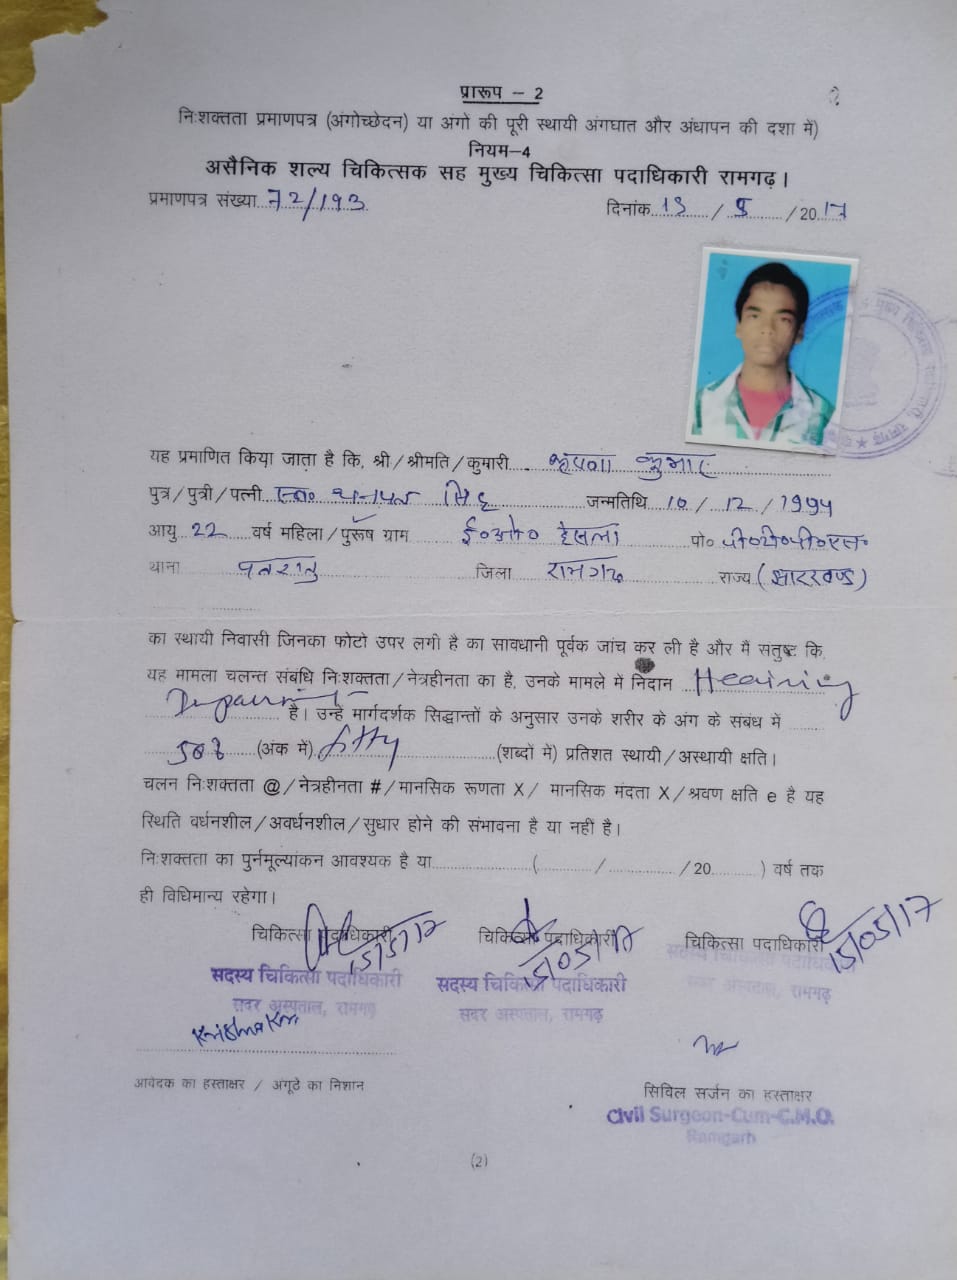 प्रारूप – 2
निःशक्तता प्रमाणपत्र (अंगोच्छेदन) या अंगो की पूरी स्थायी अंगघात और अंधापन की दशा में)
नियम–4
असैनिक शल्य चिकित्सक सह मुख्य चिकित्सा पदाधिकारी रामगढ़।
प्रमाणपत्र संख्या 72/193 दिनांक 15 / 5 / 2017
यह प्रमाणित किया जाता है कि, श्री/श्रीमति/कुमारी कृष्णा कुमार
पुत्र/पुत्री/पत्नी स्व० धनपत सिंह जन्मतिथि 10 / 12 / 1994
आयु 22 वर्ष महिला/पुरूष ग्राम ई०ओ० हेसला पो० पी०टी०पी०एस०
थाना पतरातु जिला रामगढ़ राज्य (झारखण्ड)
का स्थायी निवासी जिनका फोटो उपर लगी है का सावधानी पूर्वक जांच कर ली है और मैं संतुष्ट कि,
यह मामला चलन्त संबंधि निःशक्तता/नेत्रहीनता का है, उनके मामले में निदान Hearing
है। उन्हें मार्गदर्शक सिद्धान्तों के अनुसार उनके शरीर के अंग के संबंध में
50% (अंक में) fifty (शब्दों में) प्रतिशत स्थायी/अस्थायी क्षति।
चलन निःशक्तता @/नेत्रहीनता #/मानसिक रूणता X/ मानसिक मंदता X/श्रवण क्षति e है यह
स्थिति वर्धनशील/अवर्धनशील/सुधार होने की संभावना है या नहीं है।
निःशक्तता का पुर्नमूल्यांकन आवश्यक है या ( / / 20 ) वर्ष तक
ही विधिमान्य रहेगा।
चिकित्सा पदाधिकारी चिकित्सा पदाधिकारी चिकित्सा पदाधिकारी
15/5/17 15/05/17 15/05/17
सदस्य चिकित्सा पदाधिकारी सदस्य चिकित्सा पदाधिकारी सदस्य चिकित्सा पदाधिकारी
सदर अस्पताल, रामगढ़ सदर अस्पताल, रामगढ़ सदर अस्पताल, रामगढ़
Krishna Kr.
आवेदक का हस्ताक्षर / अंगूठे का निशान सिविल सर्जन का हस्ताक्षर
Civil Surgeon-Cum-C.M.O.
Ramgarh
(2)